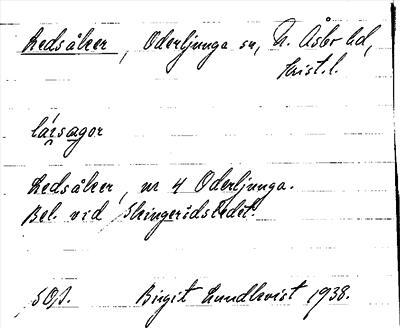 Ledsåker, Oderljunga sn, N. Åsbo hd,
Krist. l.
lásagor
Ledsåker, nr 4 Oderljunga.
Bel. vid Skingeridsledet.
SOJ. Birgit Lundkvist 1938.